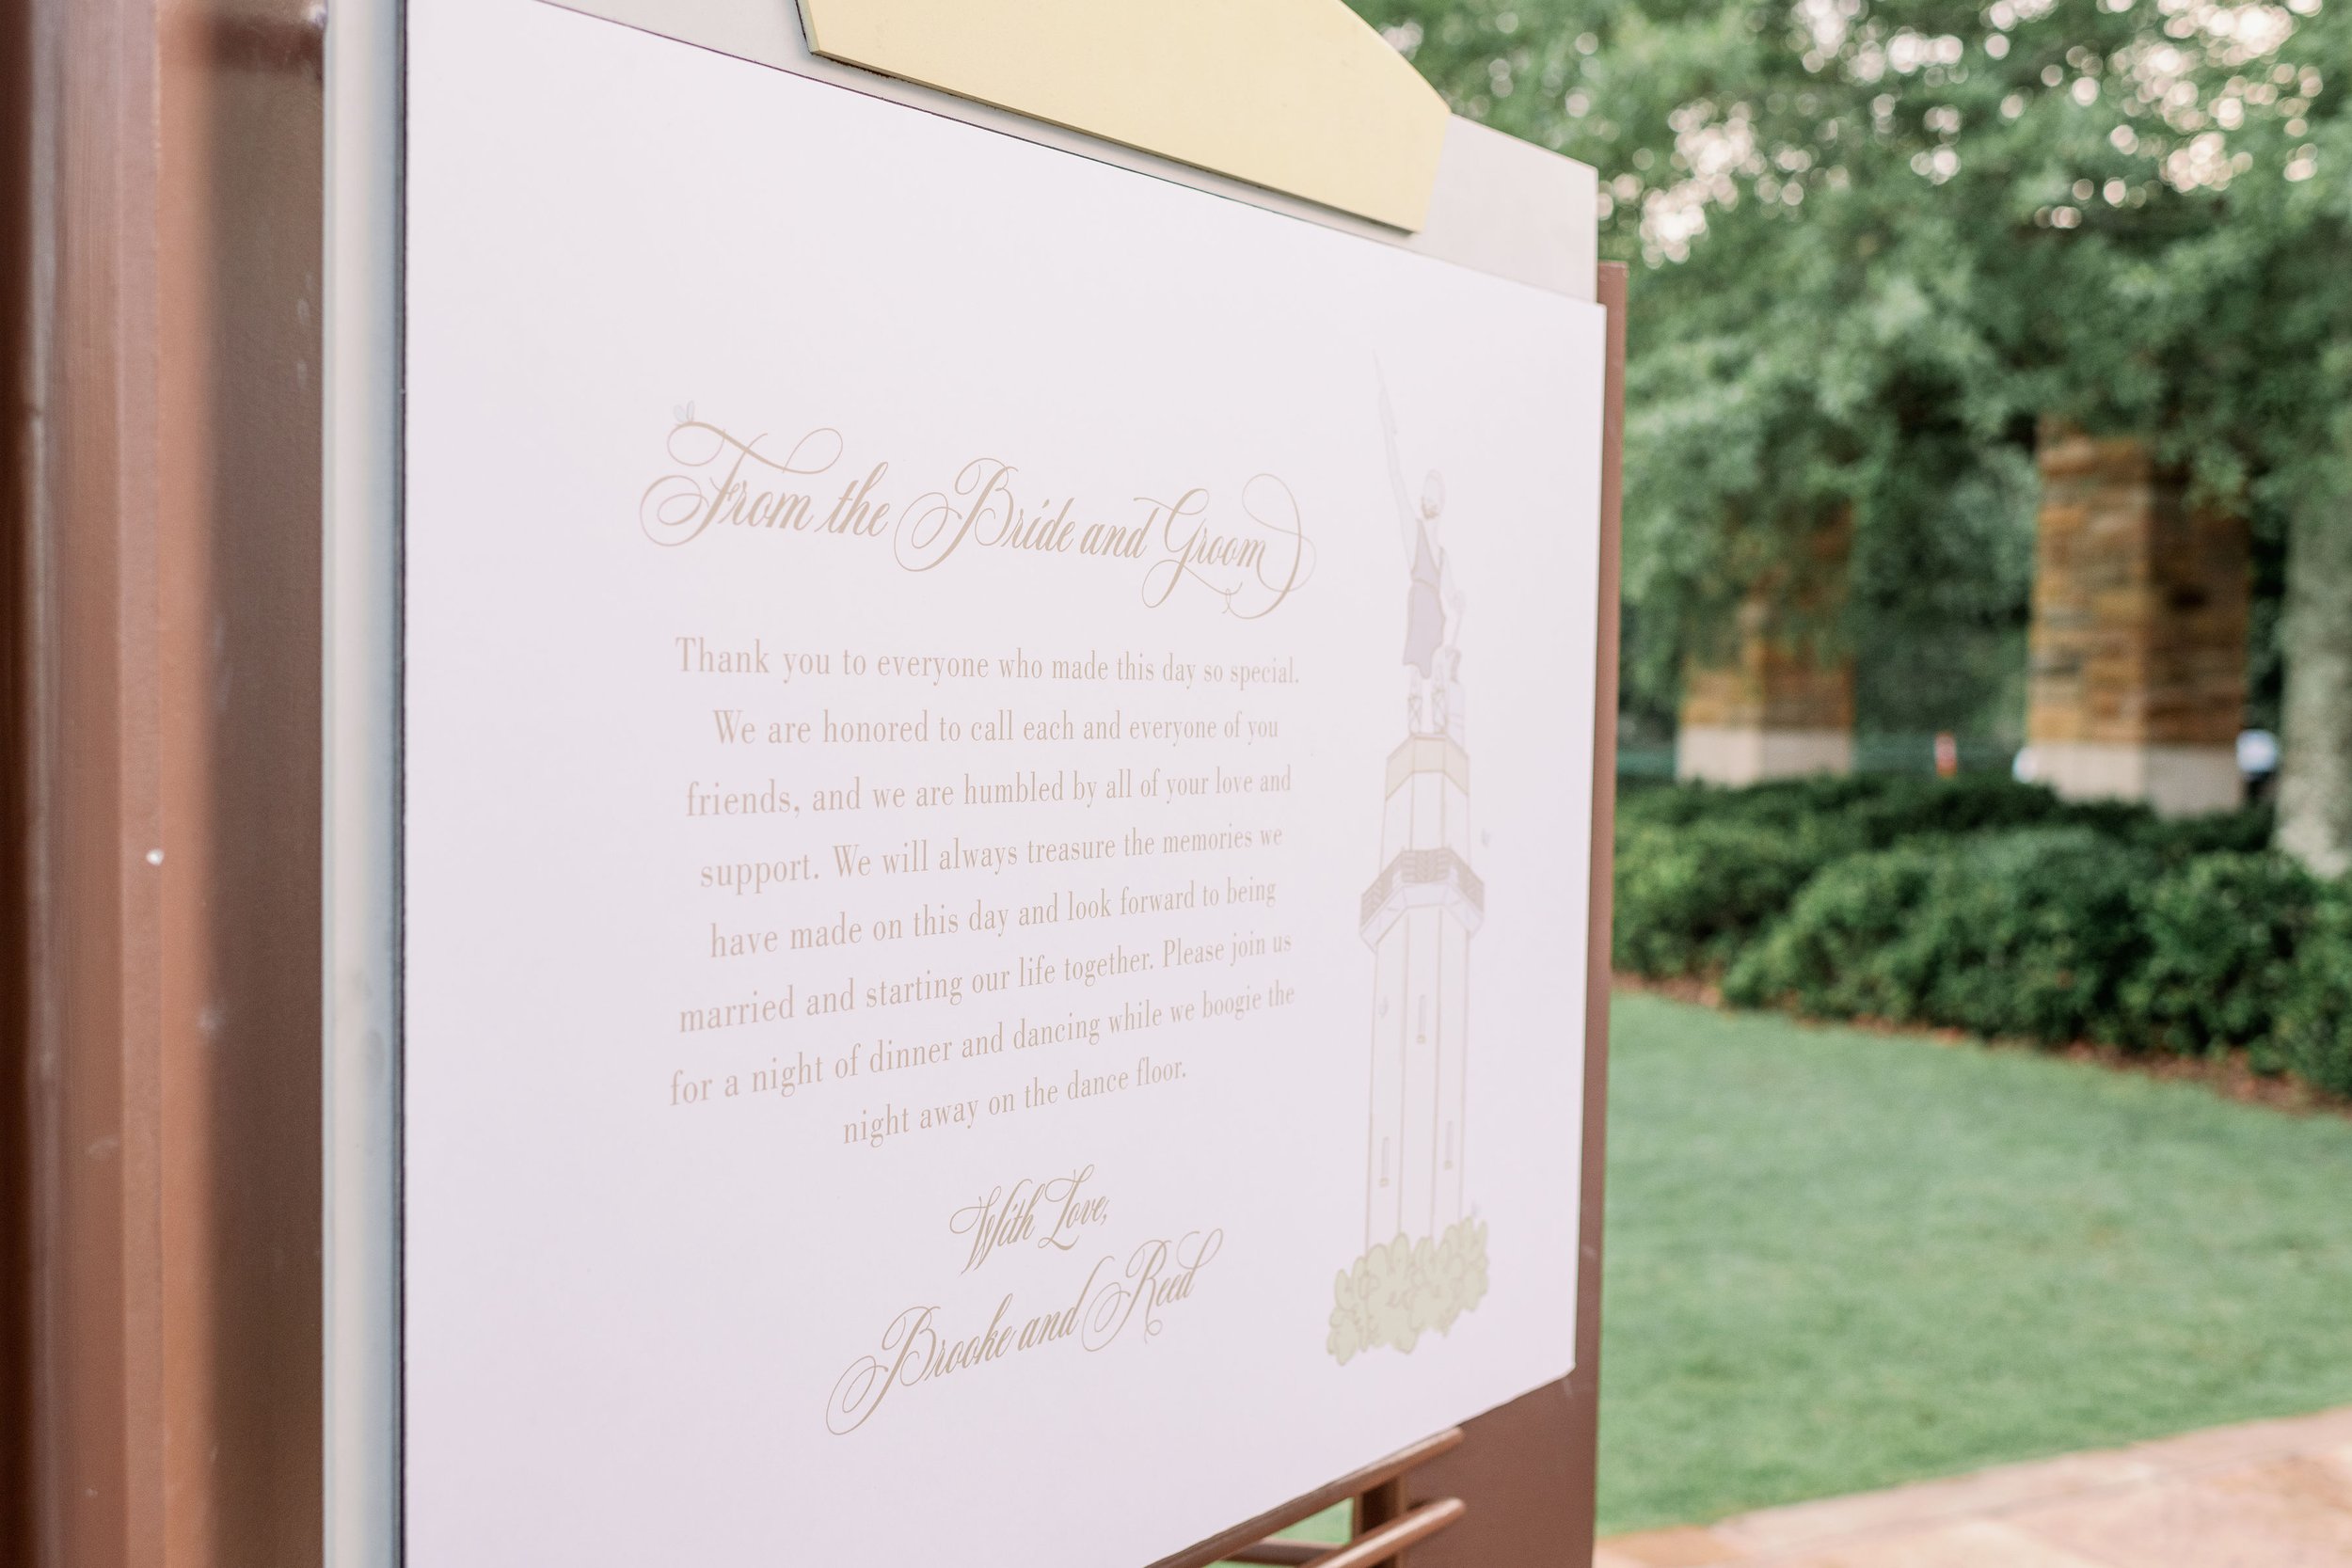 From the Bride and Groom
Thank you to everyone who made this day so special.
We are honored to call each and everyone of you
friends, and we are humbled by all of your love and
support. We will always treasure the memories we
have made on this day and look forward to being
married and starting our life together. Please join us
for a night of dinner and dancing while we boogie the
night away on the dance floor.
With Love,
Brooke and Reed